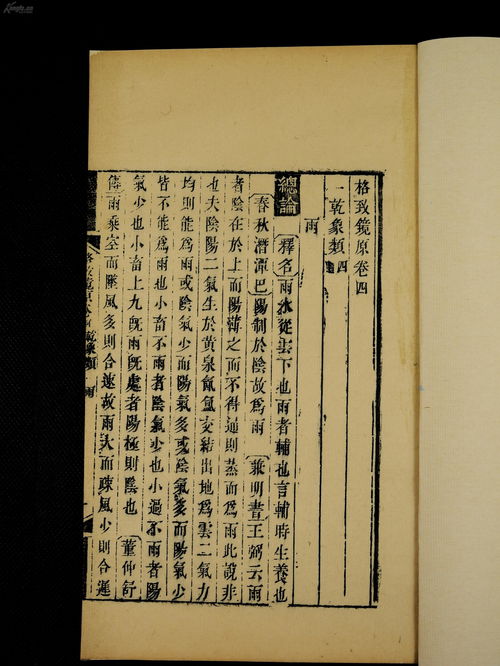 格致鏡原卷四
乾象類四
雨
總論 釋名 雨水從雲下也雨者輔也言輔時生養也
春秋潛潭巴 陽制於陰故爲雨 兼明書 王弼云雨
者陰在於上而陽薄之而不得通則蒸而爲雨此說非
也夫陰陽二氣生於黃泉氤氳交結出地爲雲二氣力
均則能爲雨或陰氣少而陽氣多或陰氣多而陽氣少
皆不能爲雨也小畜不雨者陰氣少也小過不雨者陽
氣少也小畜上九旣雨旣處者陽極則陰也 董仲舒
傳 雨乗空而墜風多則合速故雨大而疎風少則合遲
格致鏡原 乾象類 雨
Kongfz.cn